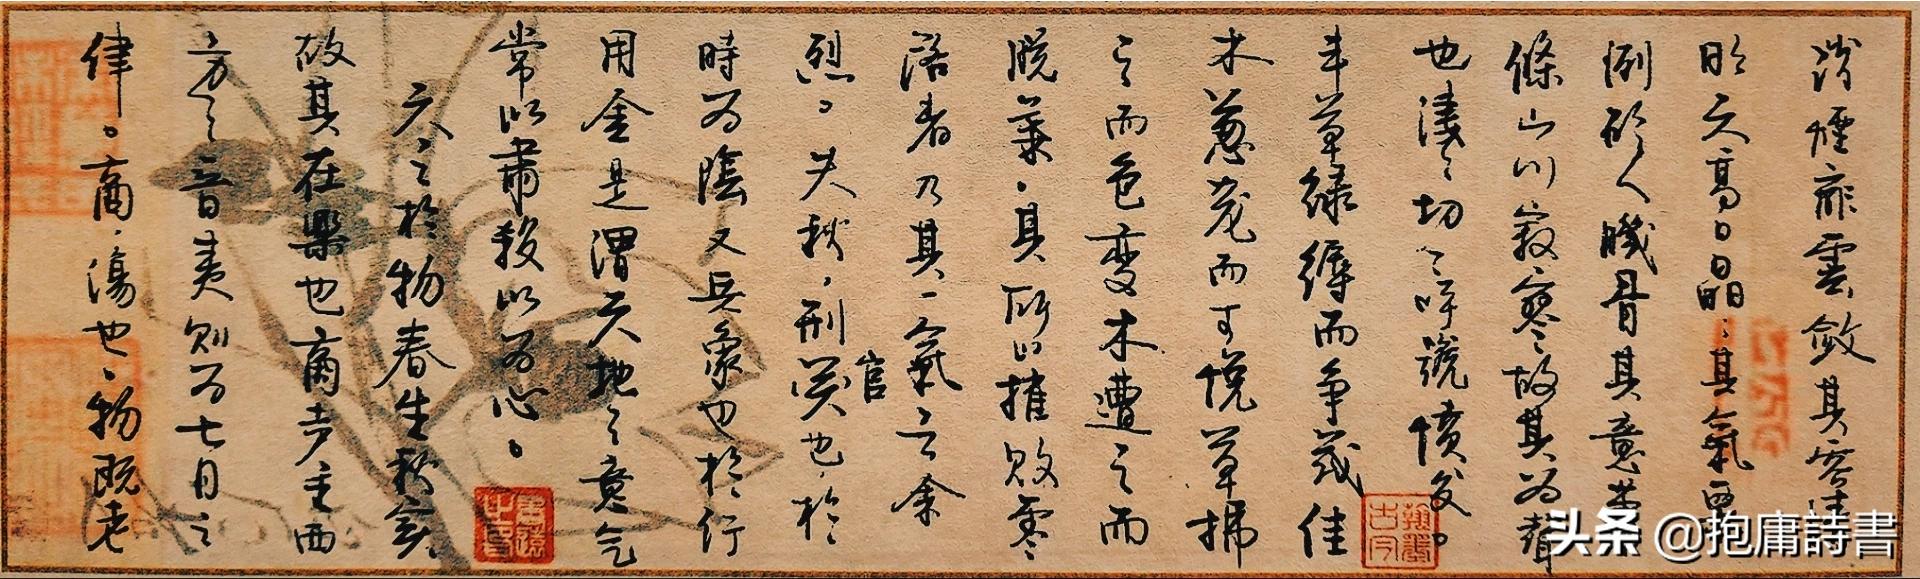 煙霏雲斂其容清
明天高日晶其氣栗
冽砭人肌骨其意蕭
條山川寂寥故其为聲
也淒々切々呼號憤发。
丰草绿縟而争茂佳
木葱茏而可悦草拂
之而色变木遭之而
脱葉、其所以摧败零
落者乃其一氣之余
烈。夫秋、刑官也、於
時为陰又兵象也於行
用金是謂天地之意气
常以肅殺以为心。
天之於物春生秋实
故其在樂也商声主西
方之音夷则为七月之
律。商、傷也、物既老
翰墨古今
头条 @抱庸詩書